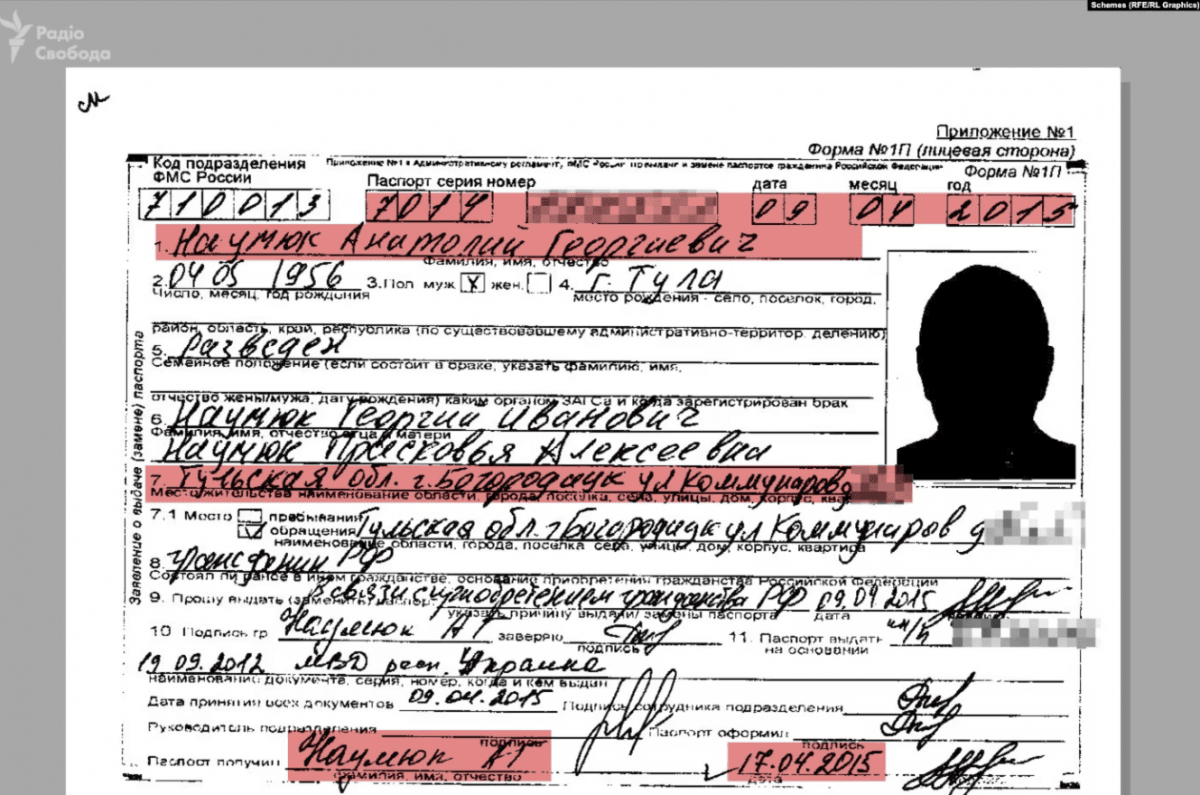 Schemes (RFE/RL Graphics)
Радіо
Свобода
Приложение №1
Форма №1П (лицевая сторона)
Код подразделения
ФМС России
Паспорт серия номер
дата месяц год
Форма №1П
710013 7014 09 04 2015
1. Наумюк Анатолий Георгиевич
Фамилия, имя, отчество
2. 04 05 1956 3. Пол муж. X жен. 4. г. Тула
Число, месяц, год рождения место рождения - село, поселок, город,
район, область, край, республика (по существовавшему административно-территор. делению)
5. Разведен
Семейное положение (если состоит в браке, указать фамилию, имя,
отчество жены/мужа, дату рождения) каким органом ЗАГСа и когда зарегистрирован брак
6. Наумюк Георгий Иванович
Фамилия, имя, отчество отца и матери
Наумюк Прасковья Алексеевна
7. Тульская обл. г. Богородицк ул Коммунаров д
Место жительства наименование области, города, поселка, села, улицы, дом, корпус,
7.1 Место пребывания
обращения Тульская обл. г Богородицк ул Коммунаров д
наименование области, города, поселка села, улицы, дом, корпус, квартира
8. РФ
Состоял ли ранее в ином гражданстве, основание приобретения гражданства Российской Федерации
9. Прошу выдать (заменить) паспорт В связи с приобретением гражданства РФ 09.04.2015
указать причину выдачи/ замены паспорта дата
10 Подпись гр Наумюк АГ заверяю 11. Паспорт выдать
подпись на основании
19.09.2012 МВД респ. Украина
наименование документа, серия, номер, когда и кем выдан
Дата принятия всех документов 09.04.2015 Подпись сотрудника подразделения
Руководитель подразделения Паспорт оформил
подпись подпись
Паспорт получил Наумюк АГ 17.04.2015
фамилия, имя, отчество дата
Заявление о выдаче (замене) паспорта